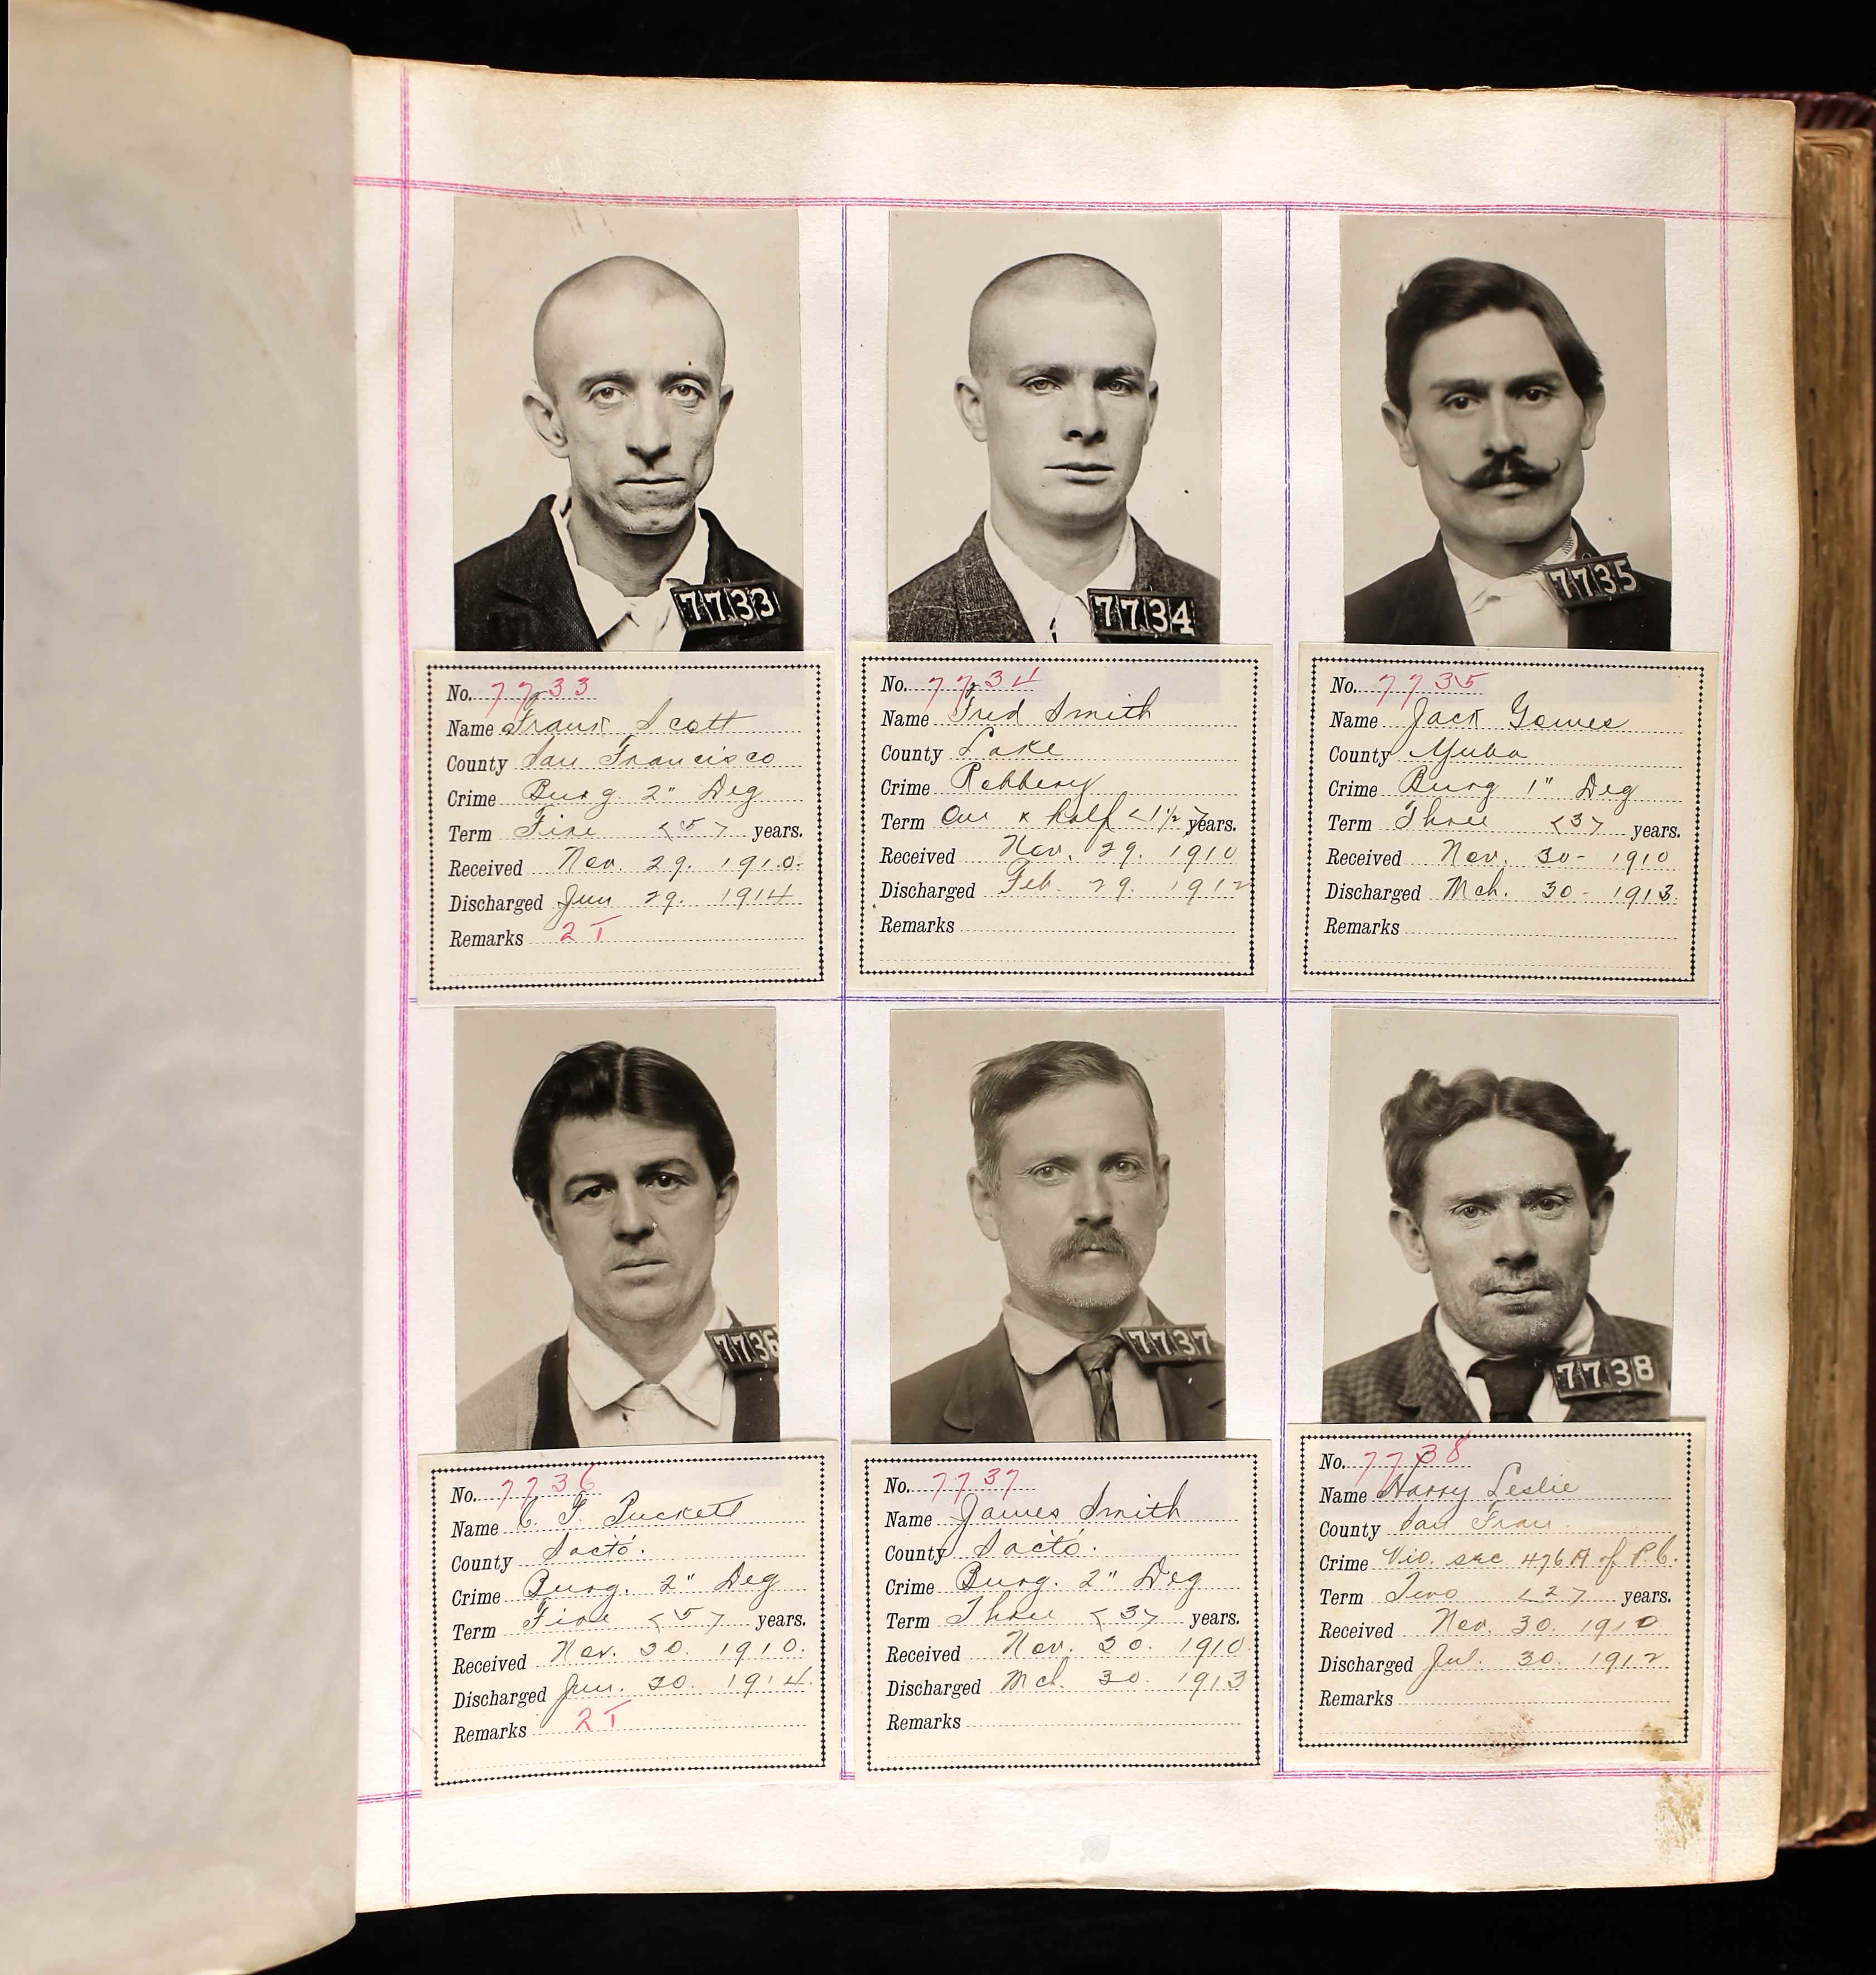 7733
7734
7735
No. 7733
Name Frank Scott
County San Francisco
Crime Burg. 2" Deg
Term Five <5> years.
Received Nov. 29. 1910.
Discharged Jun 29. 1914
Remarks 2 T
No. 7734
Name Fred Smith
County Lake
Crime Robbery
Term One & half <1½> years.
Received Nov. 29. 1910
Discharged Feb. 29. 1912
Remarks
No. 7735
Name Jack Gomes
County Yuba
Crime Burg 1" Deg
Term Three <3> years.
Received Nov. 30 - 1910
Discharged Mch. 30 - 1913.
Remarks
7736
7737
7738
No. 7736
Name C. F. Puckett
County Sacto.
Crime Burg. 2" Deg
Term Five <5> years.
Received Nov. 30. 1910.
Discharged Jun. 30. 1914.
Remarks 2 T
No. 7737
Name James Smith
County Sacto.
Crime Burg. 2" Deg
Term Three <3> years.
Received Nov. 30. 1910
Discharged Mch. 30. 1913
Remarks
No. 7738
Name Harry Leslie
County San Fran.
Crime Vio. sec 476 A of P.C.
Term Two <2> years.
Received Nov. 30. 1910
Discharged Jul. 30. 1912
Remarks